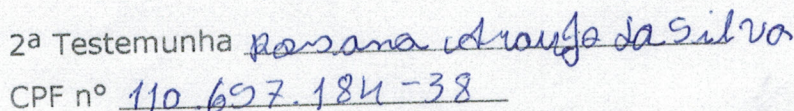 2ª Testemunha Rosana Araujo da Silva
CPF nº 110.697.184-38